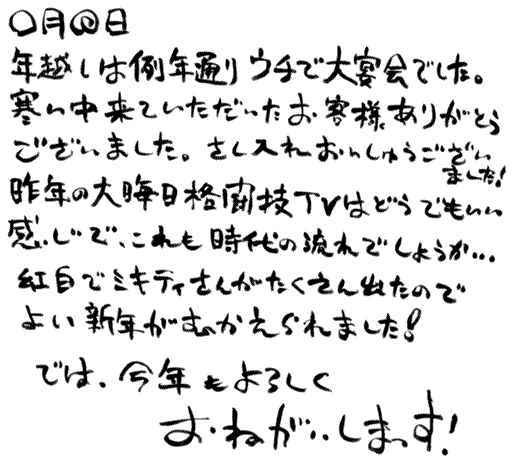 〇月◎日
年越しは例年通りウチで大宴会でした。
寒い中来ていただいたお客様、ありがとう
ございました。さし入れおいしゅうござい
ました!
昨年の大晦日格闘技TVはどうでもいい
感じで、これも時代の流れでしょうか…
紅白でミキティさんがたくさん出たので
よい新年がむかえられました!
では、今年もよろしく
おねがいしまっす!